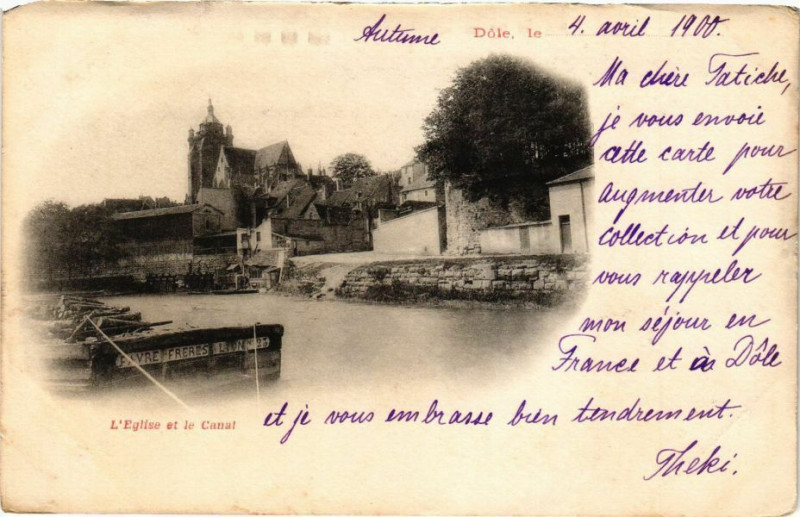 Autume Dôle, le 4. avril 1900.
Ma chère Tatiche,
je vous envoie
cette carte pour
augmenter votre
collection et pour
vous rappeler
mon séjour en
France et à Dôle
et je vous embrasse bien tendrement.
Theki.
FRERES LYON
L'Eglise et le Canal